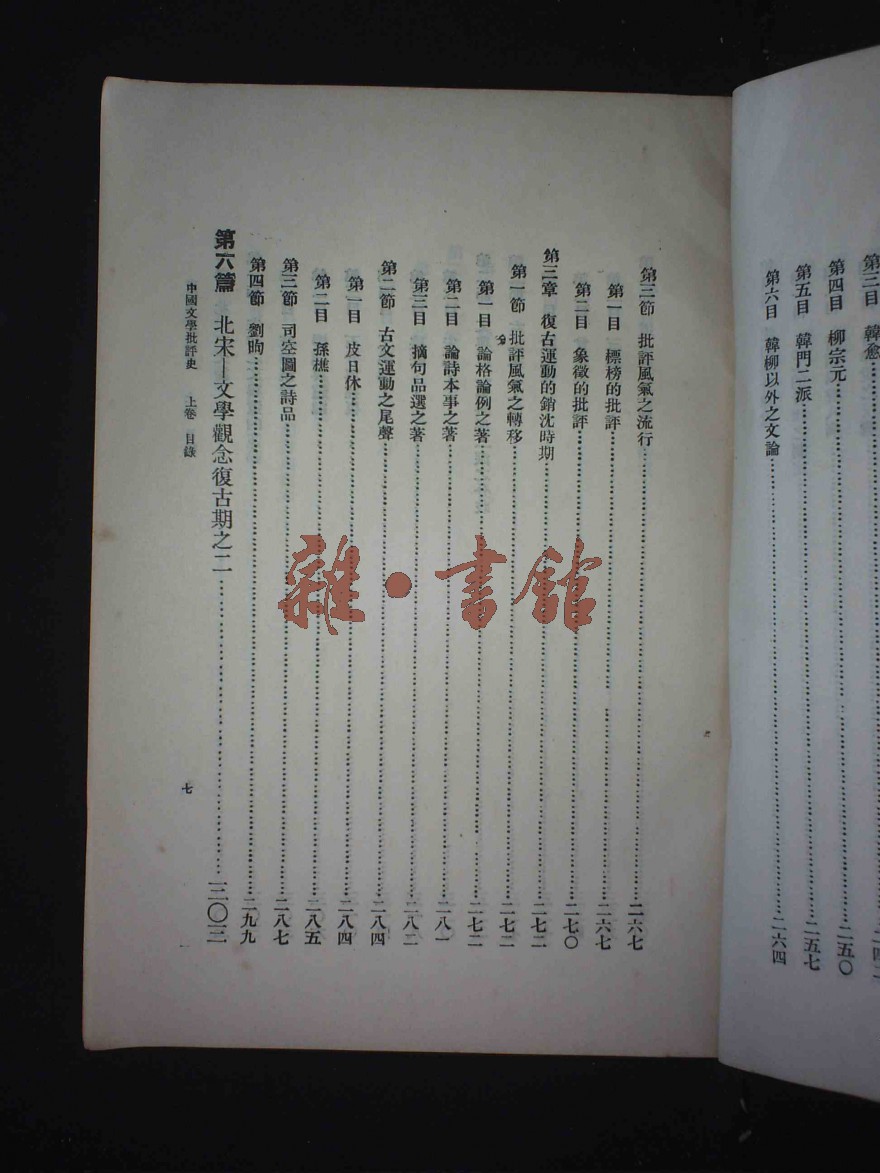 第三目 韓愈
第四目 柳宗元 二五〇
第五目 韓門二派 二五七
第六目 韓柳以外之文論 二六四
第三節 批評風氣之流行 二六七
第一目 標榜的批評 二六七
第二目 象徵的批評 二七〇
第三章 復古運動的銷沈時期 二七二
第一節 批評風氣之轉移 二七二
第一目 論格論例之著 二七二
第二目 論詩本事之著 二八一
第三目 摘句品選之著 二八二
第二節 古文運動之尾聲 二八四
第一目 皮日休 二八四
第二目 孫樵 二八五
第三節 司空圖之詩品 二八七
第四節 劉昫 二九九
第六篇 北宋—文學觀念復古期之二
中國文學批評史 上卷 目錄 七
雜·書館